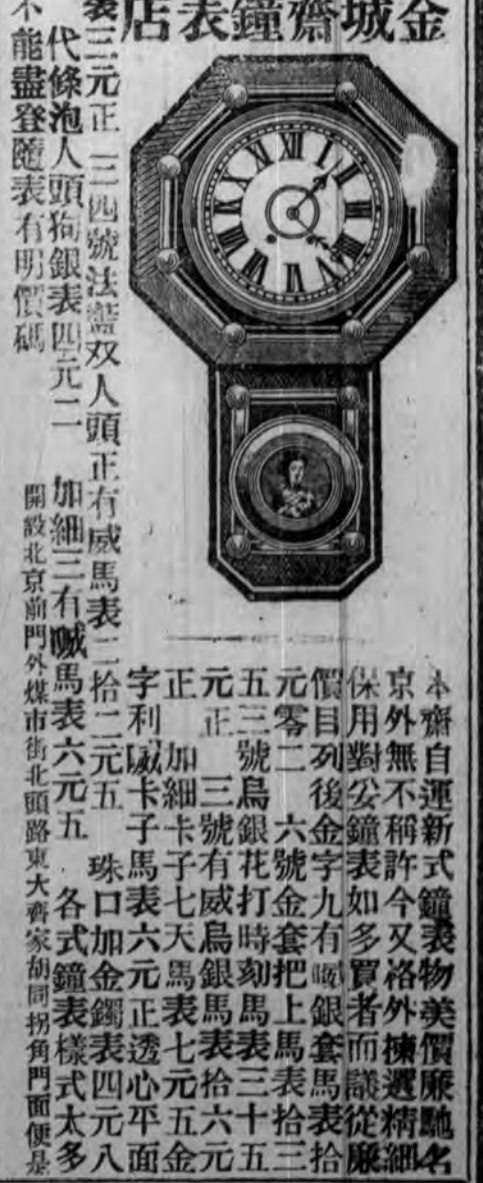 金城齋鐘表店
本齋自運新式鐘表物美價廉馳名
京外無不稱許今又格外揀選精細
保用對㕣鐘表如多買者而議從廉
價目列後金字九有㘙銀套馬表拾
元零二 六號金套把上馬表拾三
五三號鳥銀花打時刻馬表三十五
元正 三號有威鳥銀馬表拾六元
正 加細卡子七天馬表七元五金
字利㘙卡子馬表六元正透心平面
表三元正 三四號法藍双人頭正有威馬表二拾二元五 珠口加金鐲表四元八
代條泡人頭狗銀表四元二 加細三有㘙馬表六元五 各式鐘表樣式太多
不能盡登隨表有明價碼
開設北京前門外煤市街北頭路東大齊家胡同拐角門面便是